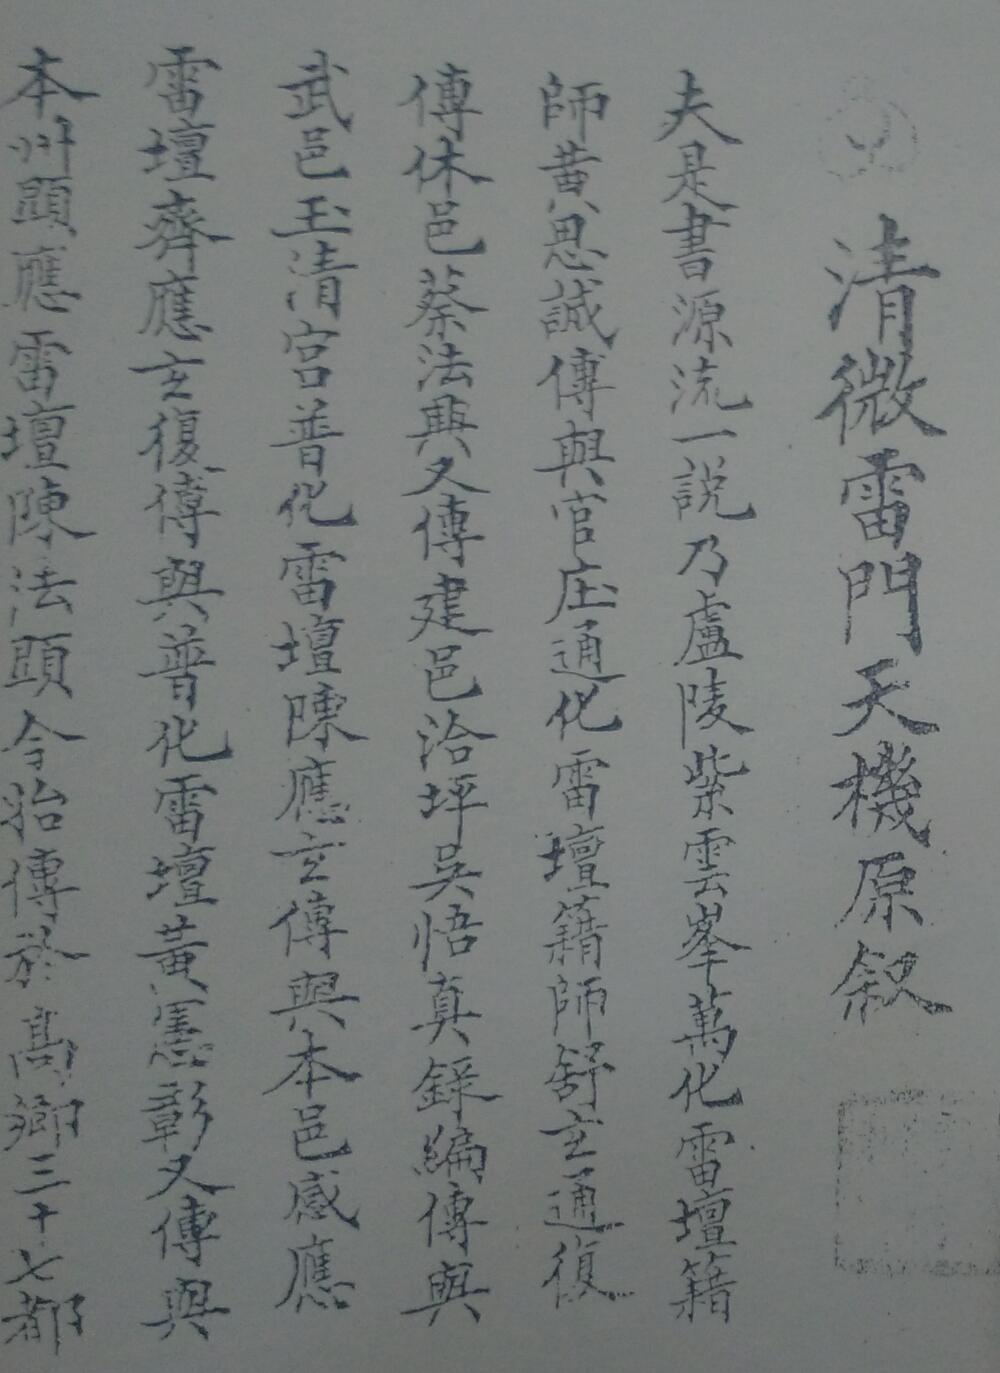 清微雷門天機原叙
夫是書源流一說乃盧陵紫雲峯萬化雷壇籍
師黄思誠傳與官庄通化雷壇籍師舒玄通復
傳休邑蔡法興又傳建邑洽坪吳悟真錄編傳與
武邑玉清宮普化雷壇陳應玄傳與本邑感應
雷壇齊應玄復傳與普化雷壇黄憲彰又傳與
本州顕應雷壇陳法顕今抬傳於髙鄉三十七都